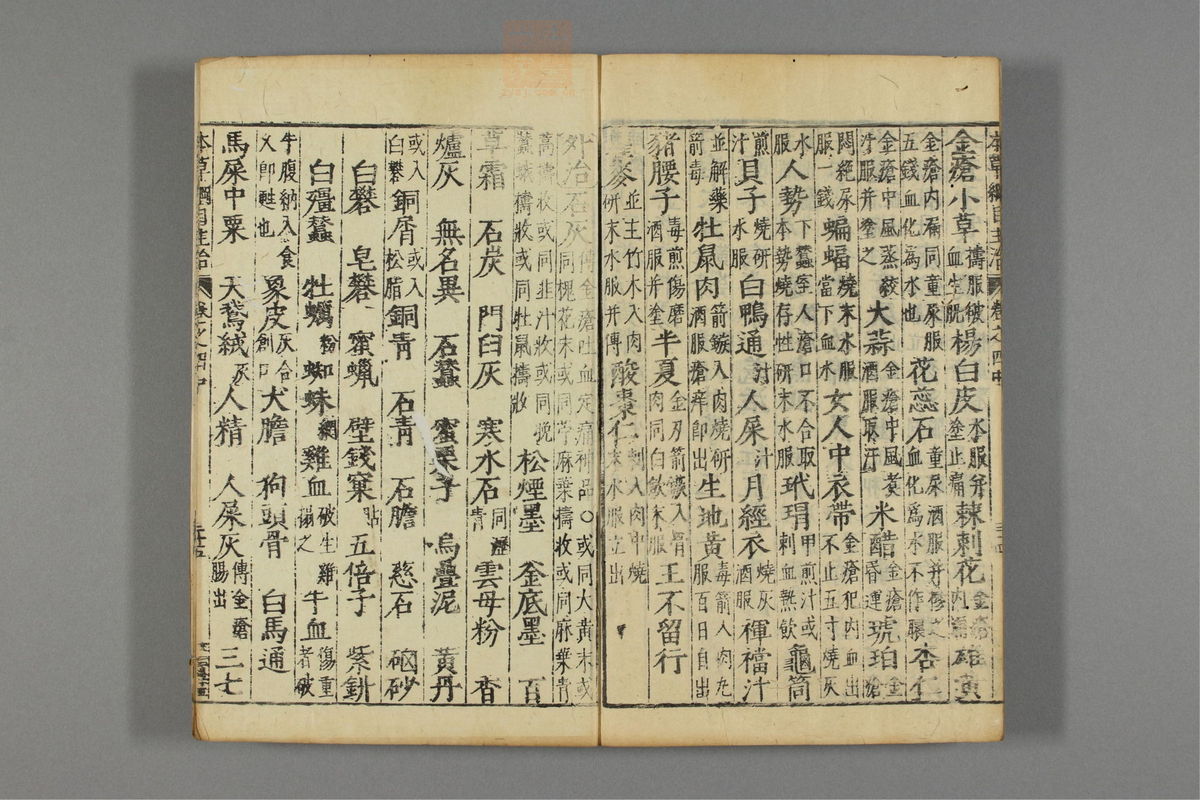 金瘡小草擣服破血生肌楊白皮水服并塗止痛棘刺花金瘡內漏雄黃
金瘡內漏同童尿服五錢血化為水也花蕊石血化為水不作膿杏仁
金瘡中風蒸絞汁服并塗之大蒜金瘡中風煑酒服取汗米醋金瘡昏運琥珀金瘡
悶絕尿服一錢蝙蝠燒末水服當下血水女人中衣帶金瘡犯內血出不止五寸燒灰
水服人勢下蠶室人瘡口不合取本勢燒存性研末水服玳瑁甲煎汁或刺血熱飲龜筒
煎汁貝子燒研水服白鴨通汁人屎汁月經衣燒灰酒服褌襠汁
並解藥箭毒牡鼠肉箭鏃入肉燒研酒服瘡痒即出生地黃毒箭入肉丸服百日自出
猪腰子毒煎傷磨酒服并塗半夏金刃箭鏃入骨肉同白歛末服王不留行
瞿麥並主竹木入肉研末水服并傅酸棗仁刺入肉中燒末水服立出
外治石灰傅金瘡吐血定痛神品○或同大黃末或同槐花末或同苧麻葉擣收或同麻葉青
蒿擣收或同韭汁收或同晚蠶蛾擣收或同牡鼠擣收松煙墨 釜底墨 百
草霜 石炭 門臼灰 寒水石同瀝青雲母粉 香
爐灰 無名異 石蠶 蜜栗子 烏疊泥 黃丹
或入白礬銅屑或入松脂銅青 石青 石膽 慈石 硇砂
白礬 皂礬 蜜蠟 壁錢窠貼五倍子 紫釥
白殭蠶 牡蠣粉蜘蛛網雞血破生雞搨之牛血傷重者破
牛腹納入食乂即甦也象皮灰合創口犬膽 狗頭骨 白馬通
馬屎中粟 天鵞絨灰人精 人屎灰傅金瘡腸出三七
本草綱目主治